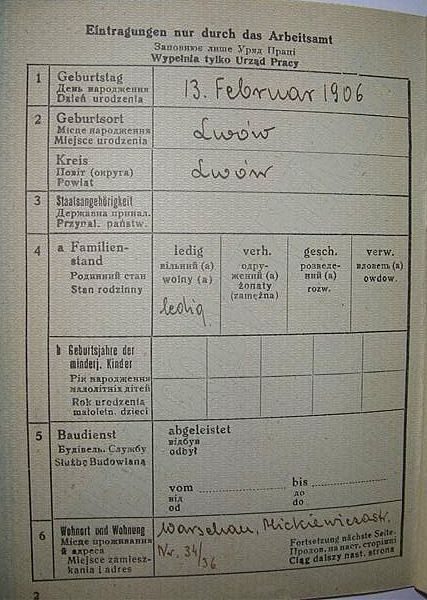 Eintragungen nur durch das Arbeitsamt
Заповнює лише Уряд Праці
Wypełnia tylko Urząd Pracy
1 Geburtstag
День народження
Dzień urodzenia
13. Februar 1906
2 Geburtsort
Місце народження
Miejsce urodzenia
Lwów
Kreis
Повіт (округа)
Powiat
Lwów
3 Staatsangehörigkeit
Державна принал.
Przynal. państw.
4 a Familien-
stand
Родинний стан
Stan rodzinny
ledig
вільний (а)
wolny (a)
ledig
verh.
одру-
жений (а)
żonaty
(zamężna)
gesch.
розведе-
ний (а)
rozw.
verw.
вдовець (а)
owdow.
b Geburtsjahre der
minderj. Kinder
Рік народження
малолітніх дітей
Rok urodzenia
małoletn. dzieci
5 Baudienst
Будівель. Службу
Służbę Budowlaną
abgeleistet
відбув
odbył
vom bis
від до
od do
6 Wohnort und Wohnung
Місце проживання
й адреса
Miejsce zamiesz-
kania i adres
Warschau, Mickiewiczastr.
Nr. 34/36
Fortsetzung nächste Seite.
Продовж. на наст. сторінці
Ciąg dalszy nast. strona
2